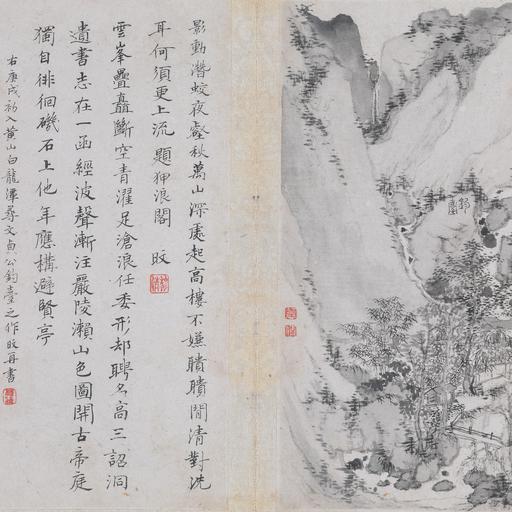 影動潛蛟夜壑秋萬山深處起高樓不嫌聵聵閒清對洗
耳何須更上流 題狎浪閣 旼
雲峯疊矗斷空青濯足滄浪任委形却聘名高三詔洞
遺書志在一函經波聲漸注嚴陵瀨山色圖開古帝庭
獨自徘徊磯石上他年應構避賢亭
右庚戌初入黄山白龍潭尋文貞公釣臺之作旼再書